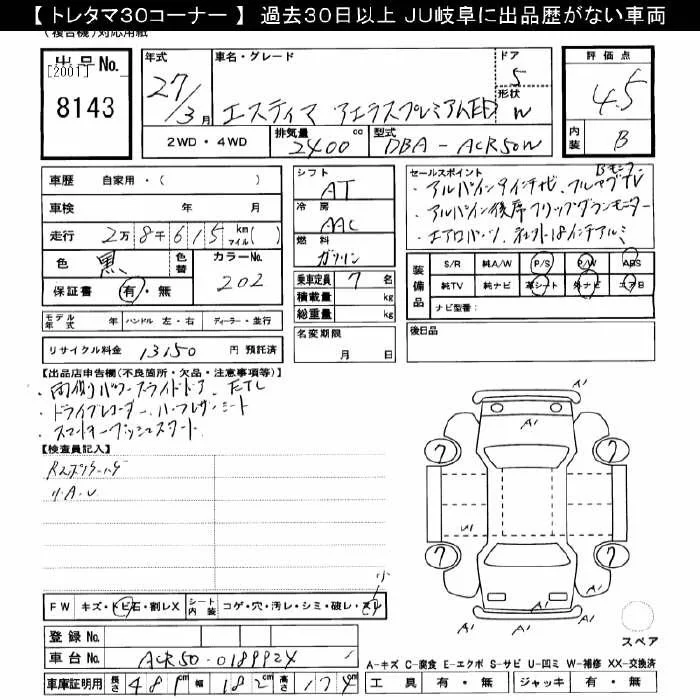 【 トレタマ30コーナー 】 過去30日以上 JU岐阜に出品歴がない車両
(複合機)対応用紙
出品No. [2001]
8143
年式 27/3月
車名・グレード
エスティマ アエラスプレミアムED
ドア 5
形状 W
評価点 4.5
内装 B
2WD・4WD
排気量 2400 cc
型式 DBA-ACR50W
車歴 自家用・( )
車検 年 月
走行 2万8千615 km マイル( )
色 黒
色替
カラーNo. 202
保証書 有・無
シフト AT
冷房 AAC
燃料 ガソリン
乗車定員 7 名
積載量 kg
総重量 kg
名変期限 月 日
セールスポイント
・アルパイン9インチナビ、フルセグTV Bモニター
・アルパイン後席フリップダウンモニター
・エアロパーツ、社外18インチアルミ
装備品
S/R 純A/W P/S P/W ABS
純TV 純ナビ 革シート 外ナビ エアB
ナビ型番:
後日品
モデル年式 年 ハンドル 左・右 ディーラー・並行
リサイクル料金 13150 円 預託済
【出品店申告欄(不良箇所・欠品・注意事項等)】
・両側パワースライドドア、ETC
・ドライブレコーダー、ハーフレザーシート
・スマートキープッシュスタート
【検査員記入】
リ.A.U
FW キズ・トビ石・割レX
シート内装 コゲ・穴・汚レ・シミ・破レ・スレ
小
登録No.
車台No. ACR50-0189924
車庫証明用 長さ 481 幅 182 高さ 174
A1
A1
A1
7
7
7
7
A1
A1
A1
スペア
A-キズ C-腐食 E-エクボ S-サビ U-凹ミ W-補修 XX-交換済
工具 有・無 ジャッキ 有・無